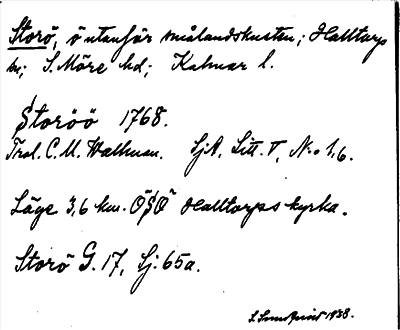 Storö, ö utanför smålandskusten; Halltorps
sn; S. Möre hd; Kalmar l.
Storöö 1768.
Trol. C. M. Wallman. SjA, Litt. V, N:o 1,6.
Läge 3,6 km. ÖSÖ Halltorps kyrka.
Storö G. 17, Sj: 65a.
1938.